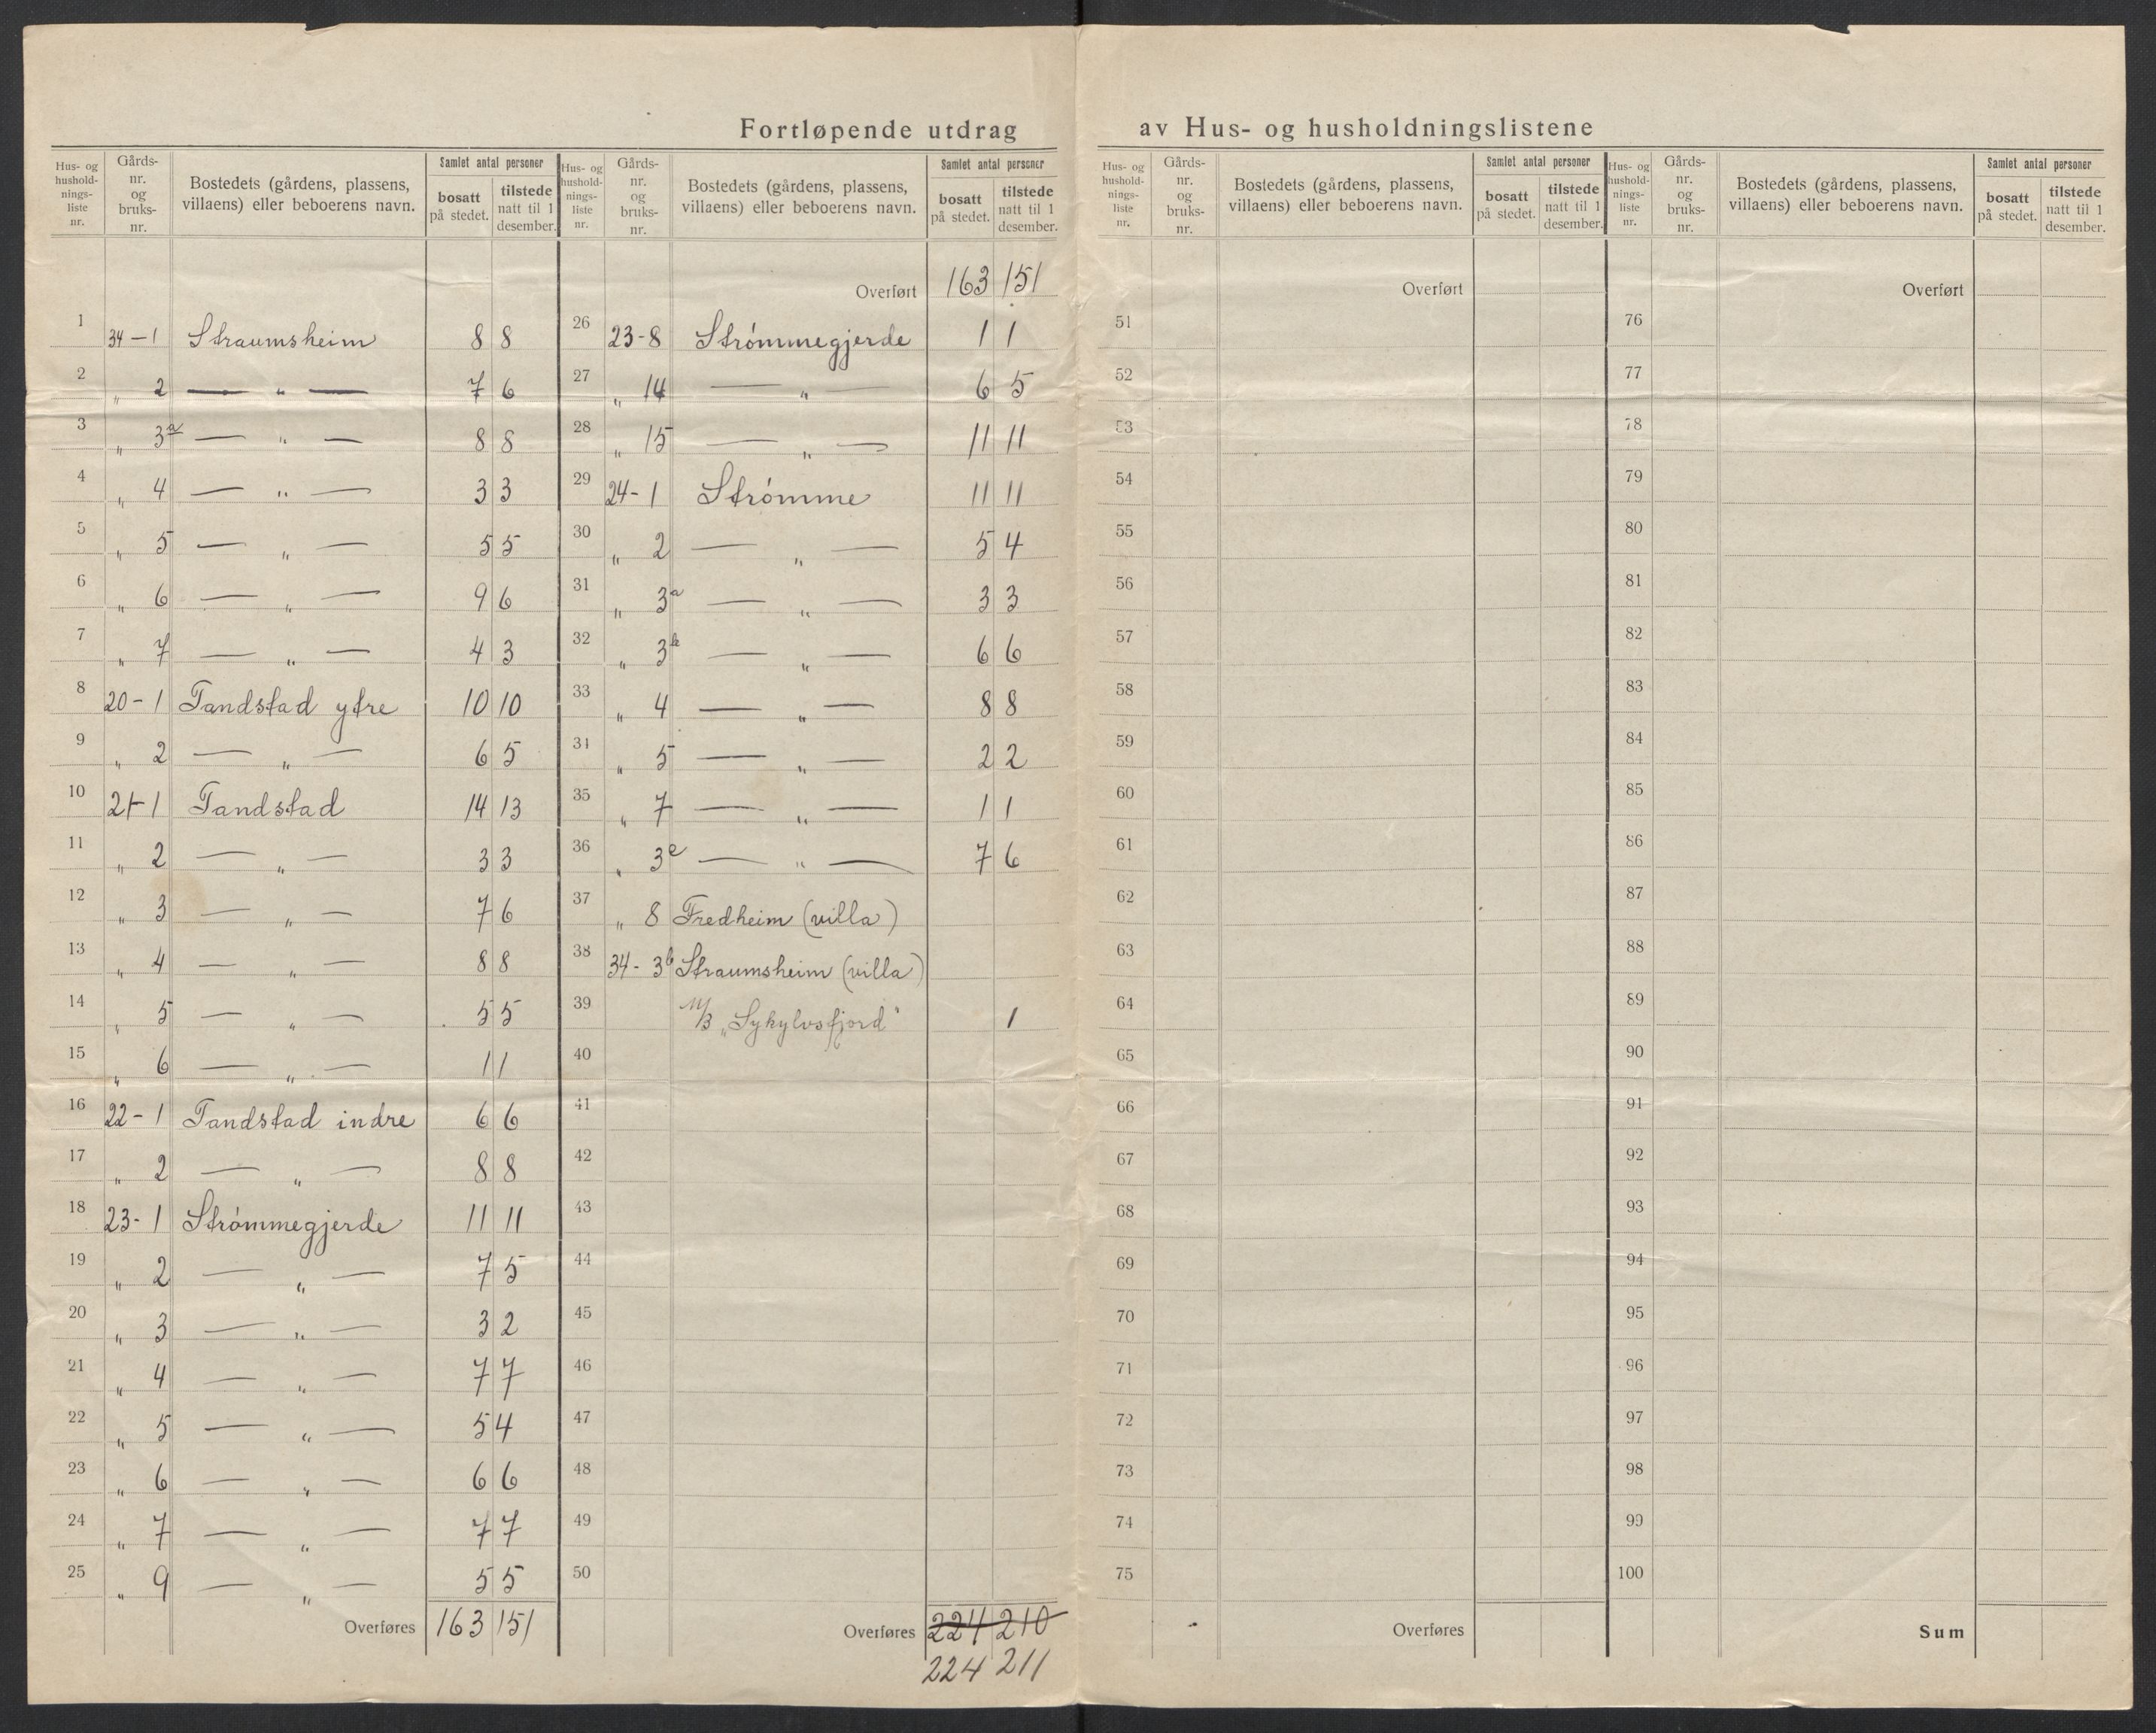 Fortløpende utdrag av Hus- og husholdningslistene
Hus- og husholdnings-liste nr. Gårds-nr. og bruks-nr. Bostedets (gårdens, plassens, villaens) eller beboerens navn. Samlet antal personer bosatt på stedet. tilstede natt til 1 desember.
1 34-1 Straumsheim 8 8
2 " 2 — " — 7 6
3 " 3a — " — 8 8
4 " 4 — " — 3 3
5 " 5 — " — 5 5
6 " 6 — " — 9 6
7 " 7 — " — 4 3
8 20-1 Tandstad ytre 10 10
9 " 2 — " — 6 5
10 21-1 Tandstad 14 13
11 " 2 — " — 3 3
12 " 3 — " — 7 6
13 " 4 — " — 8 8
14 " 5 — " — 5 5
15 " 6 — " — 1 1
16 22-1 Tandstad indre 6 6
17 " 2 — " — 8 8
18 23-1 Strömmegjerde 11 11
19 " 2 — " — 7 5
20 " 3 — " — 3 2
21 " 4 — " — 7 7
22 " 5 — " — 5 4
23 " 6 — " — 6 6
24 " 7 — " — 7 7
25 " 9 — " — 5 5
Overføres 163 151
Hus- og husholdnings-liste nr. Gårds-nr. og bruks-nr. Bostedets (gårdens, plassens, villaens) eller beboerens navn. Samlet antal personer bosatt på stedet. tilstede natt til 1 desember.
Overført 163 151
26 23-8 Strömmegjerde 1 1
27 " 14 — " — 6 5
28 " 15 — " — 11 11
29 24-1 Strömme 11 11
30 " 2 — " — 5 4
31 " 3a — " — 3 3
32 " 3b — " — 6 6
33 " 4 — " — 8 8
34 " 5 — " — 2 2
35 " 7 — " — 1 1
36 " 3c — " — 7 6
37 " 8 Fredheim (villa)
38 34-3b Straumsheim (villa)
39 M/B „Sykylvsfjord" 1
40
41
42
43
44
45
46
47
48
49
50
Overføres 224 210
224 211
Hus- og husholdnings-liste nr. Gårds-nr. og bruks-nr. Bostedets (gårdens, plassens, villaens) eller beboerens navn. Samlet antal personer bosatt på stedet. tilstede natt til 1 desember.
Overført
51
52
53
54
55
56
57
58
59
60
61
62
63
64
65
66
67
68
69
70
71
72
73
74
75
Overføres
Hus- og husholdnings-liste nr. Gårds-nr. og bruks-nr. Bostedets (gårdens, plassens, villaens) eller beboerens navn. Samlet antal personer bosatt på stedet. tilstede natt til 1 desember.
Overført
76
77
78
79
80
81
82
83
84
85
86
87
88
89
90
91
92
93
94
95
96
97
98
99
100
Sum